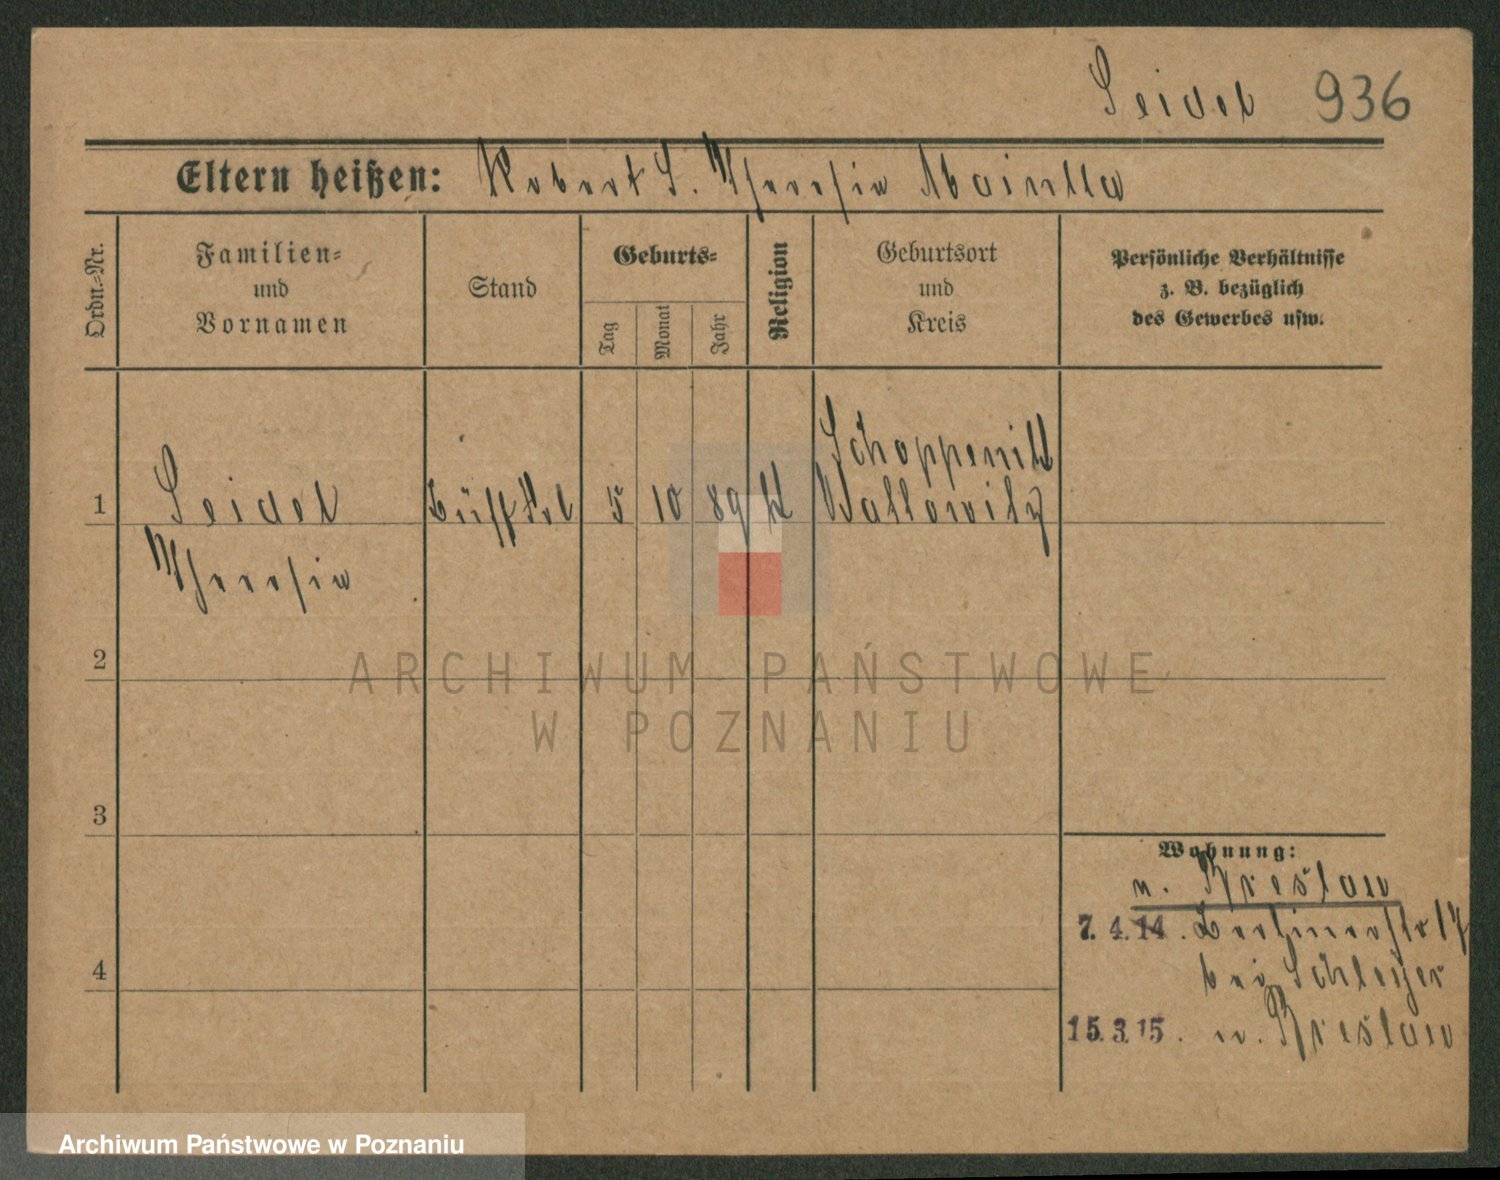 Seidel 936
Eltern heißen: Robert S. Theresia
Ordn.-Nr.
Familien-
und
Vornamen
Stand
Geburts-
Tag
Monat
Jahr
Religion
Geburtsort
und
Kreis
Persönliche Verhältnisse
z. B. bezüglich
des Gewerbes usw.
Schoppenitz
1 Seidel 5 10 89 k
Theresia
2
ARCHIWUM PAŃSTWOWE
W POZNANIU
3
Wohnung:
v. Breslau
7. 4. 14. Berlinerstr 17
bei Schleyer
4
15. 3. 15. n. Breslau
Archiwum Państwowe w Poznaniu